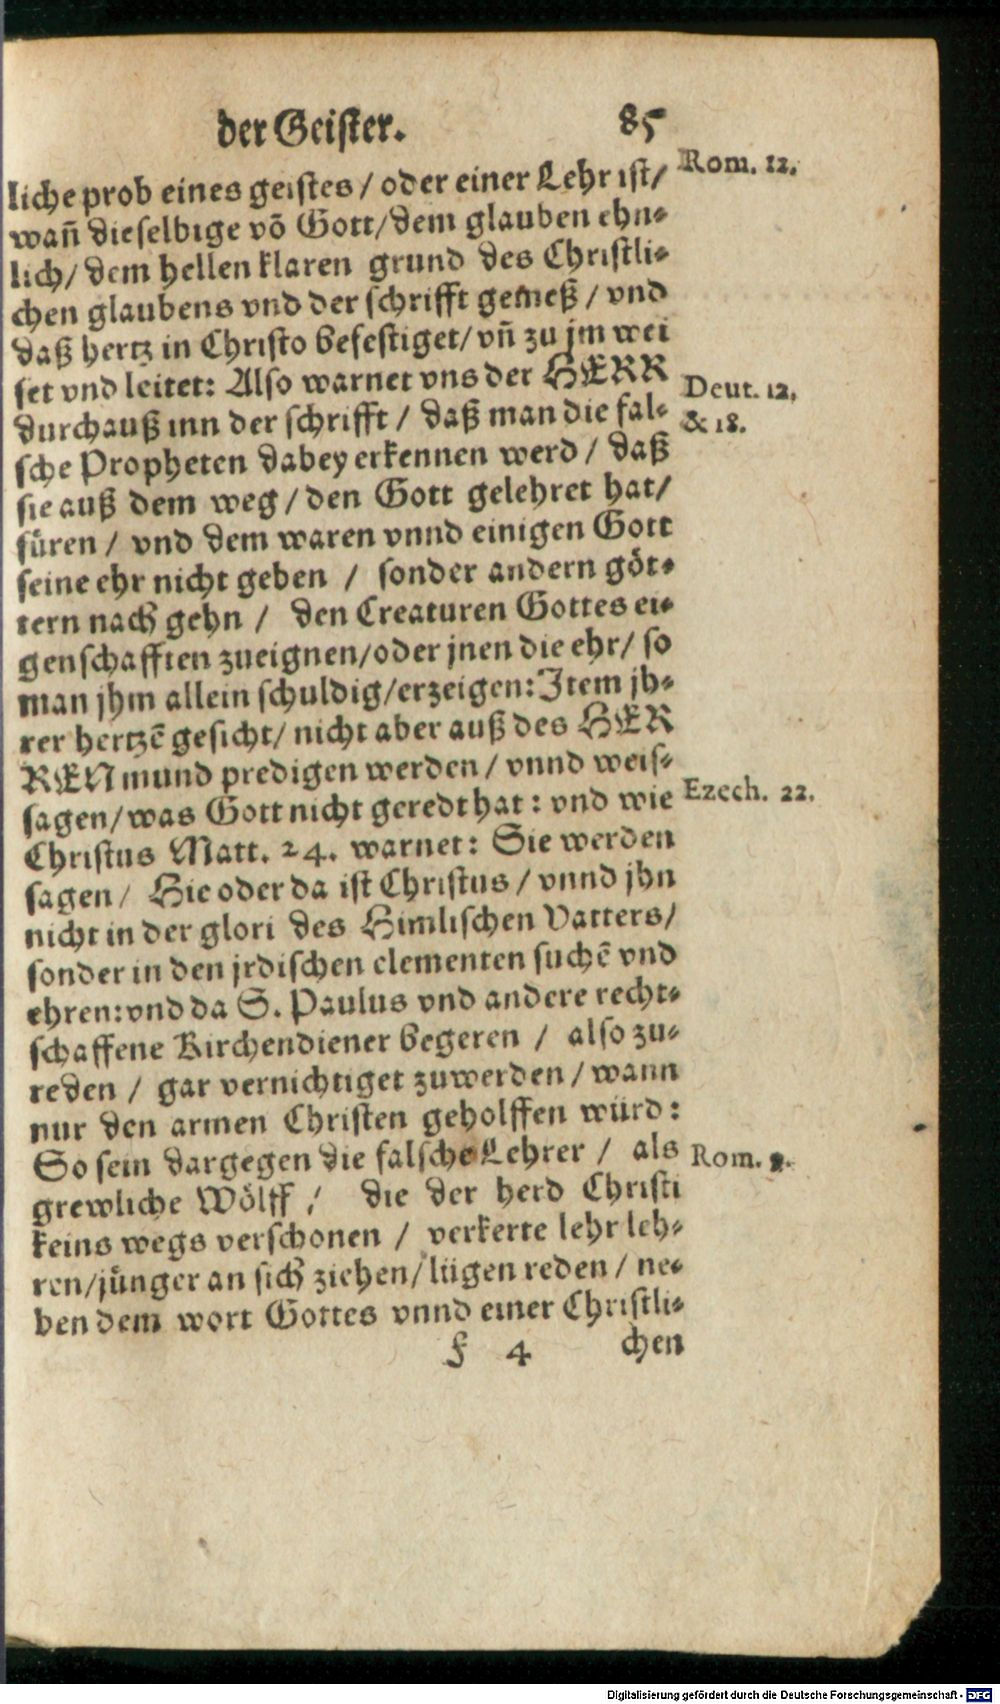 der Geister. 85
liche prob eines geistes / oder einer Lehr ist/ Rom. 12.
wañ dieselbige võ Gott/dem glauben ehn⸗
lich/ dem hellen klaren grund des Christli⸗
chen glaubens vnd der schrifft gemeß / vnd
daß hertz in Christo befestiget/ vñ zu jm wei
set vnd leitet: Also warnet vns der HERR Deut. 12.
durchauß inn der schrifft / daß man die fal⸗ & 18.
sche Propheten dabey erkennen werd / daß
sie auß dem weg / den Gott gelehret hat/
füren / vnd dem waren vnnd einigen Gott
seine ehr nicht geben / sonder andern göt⸗
tern nach gehn / den Creaturen Gottes ei⸗
genschafften zueignen/oder jnen die ehr/ so
man jhm allein schuldig/erzeigen: Item jh⸗
rer hertzẽ gesicht/ nicht aber auß des HER
REN mund predigen werden / vnnd weis⸗
sagen/was Gott nicht geredt hat: vnd wie Ezech. 22.
Christus Matt. 24. warnet: Sie werden
sagen / Hie oder da ist Christus / vnnd jhn
nicht in der glori des Himlischen Vatters/
sonder in den jrdischen elementen suchẽ vnd
ehren: vnd da S. Paulus vnd andere recht⸗
schaffene Kirchendiener begeren / also zu⸗
reden / gar vernichtiget zuwerden / wann
nur den armen Christen geholffen würd:
So sein dargegen die falsche Lehrer / als Rom. 9.
grewliche Wölff / die der herd Christi
keins wegs verschonen / verkerte lehr leh⸗
ren/jünger an sich ziehen/lügen reden / ne⸗
ben dem wort Gottes vnnd einer Christli⸗
F 4 chen
Digitalisierung gefördert durch die Deutsche Forschungsgemeinschaft - DFG